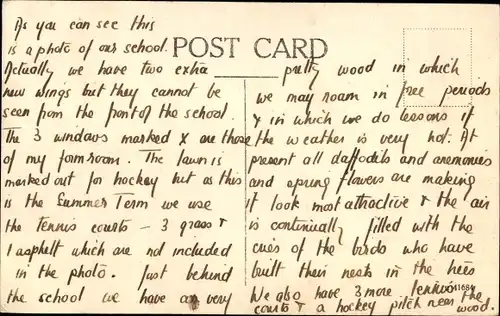 As you can see this
is a photo of our school.
POST CARD
Actually we have two extra
new wings but they cannot be
seen from the front of the school.
The 3 windows marked X are those
of my formroom. The lawn is
marked out for hockey but as this
is the Summer Term we use
the tennis courts - 3 grass +
1 asphelt which are not included
in the photo. Just behind
the school we have a very
pretty wood in which
we may roam in free periods
+ in which we do lessons if
the weather is very hot. At
present all daffodils and anemonies
and spring flowers are making
it look most attractive + the air
is continually filled with the
cries of the birds who have
built their nests in the trees
We also have 3 more tennis
courts + a hockey pitch near the
wood.